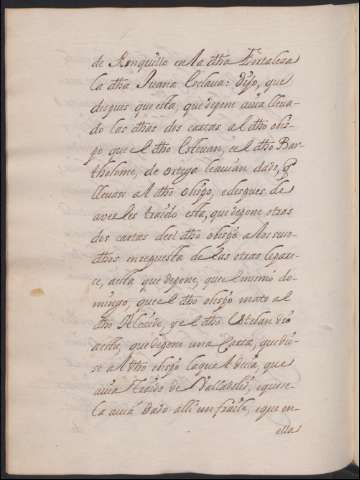 de Ronquillo en la dha Fortaleza
la dha Juana Esclava: dijo, que
despues que esta, que depone avia lleva
do las dhas dos cartas al dho obis
po que el dho Estevan, e el dho Bar
tholome, de ortega le avian dado, pª
llevar al dho obispo, e despues de
averles traido esta, que depone otras
dos cartas del dho obispo a los suso
dhos en respuesta de las otras
e, aesta que depone, que el mismo do
mingo, que el dho obispo mato al
dho Alcaide, e el dho Estevan dio
aesta, que depone una Carta, que die
se al dho obispo la qual decia, que
avia traido de Valladolid, e que se
la avia dado alli un fraile, e que en
ella